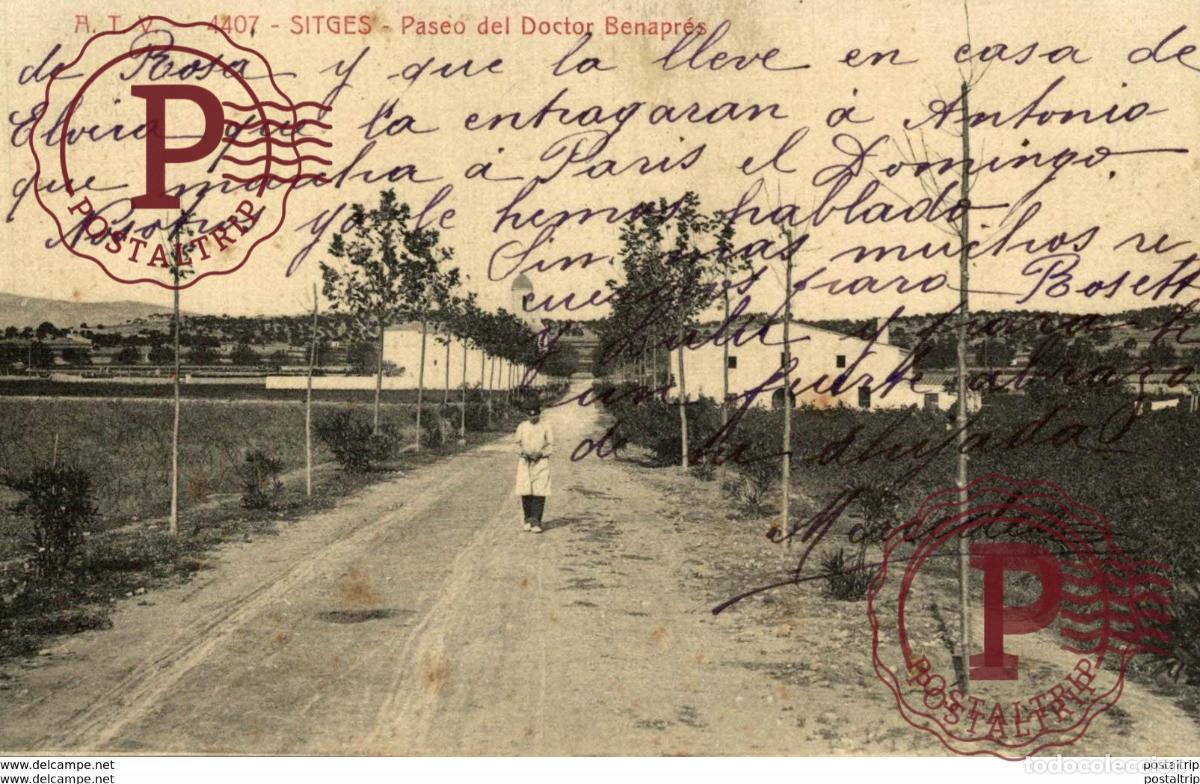 A. T. V. 4407. - SITGES - Paseo del Doctor Benaprés
de Rosa y que la lleve en casa de
Elvira que la entragaran á Antonio
que marcha á Paris el Domingo.
Nosotros ya le hemos hablado
Sin mas muchos re
cuerdos para Rosett
y Lulu y para ti
un fuerte abrazo
de tu ahijada
Mercedes
POSTALTRIP
POSTALTRIP
www.delcampe.net
postaltrip
todocoleccion
postaltrip
postaltrip